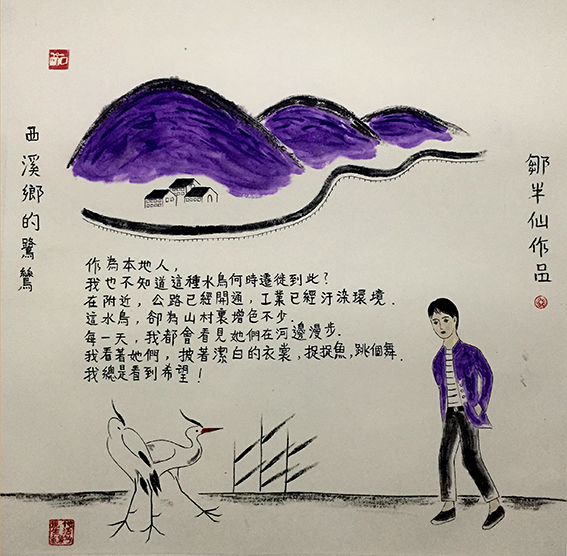 西溪鄉的鷺鷥
作為本地人，
我也不知道這種水鳥何時遷徙到此？
在附近，公路已經開通，工業已經汙染環境．
這水鳥，卻為山村裏增色不少．
每一天，我都會看見她們在河邊漫步．
我看著她們，披著潔白的衣裳，捉捉魚，跳個舞．
我總是看到希望！
鄒半仙作品